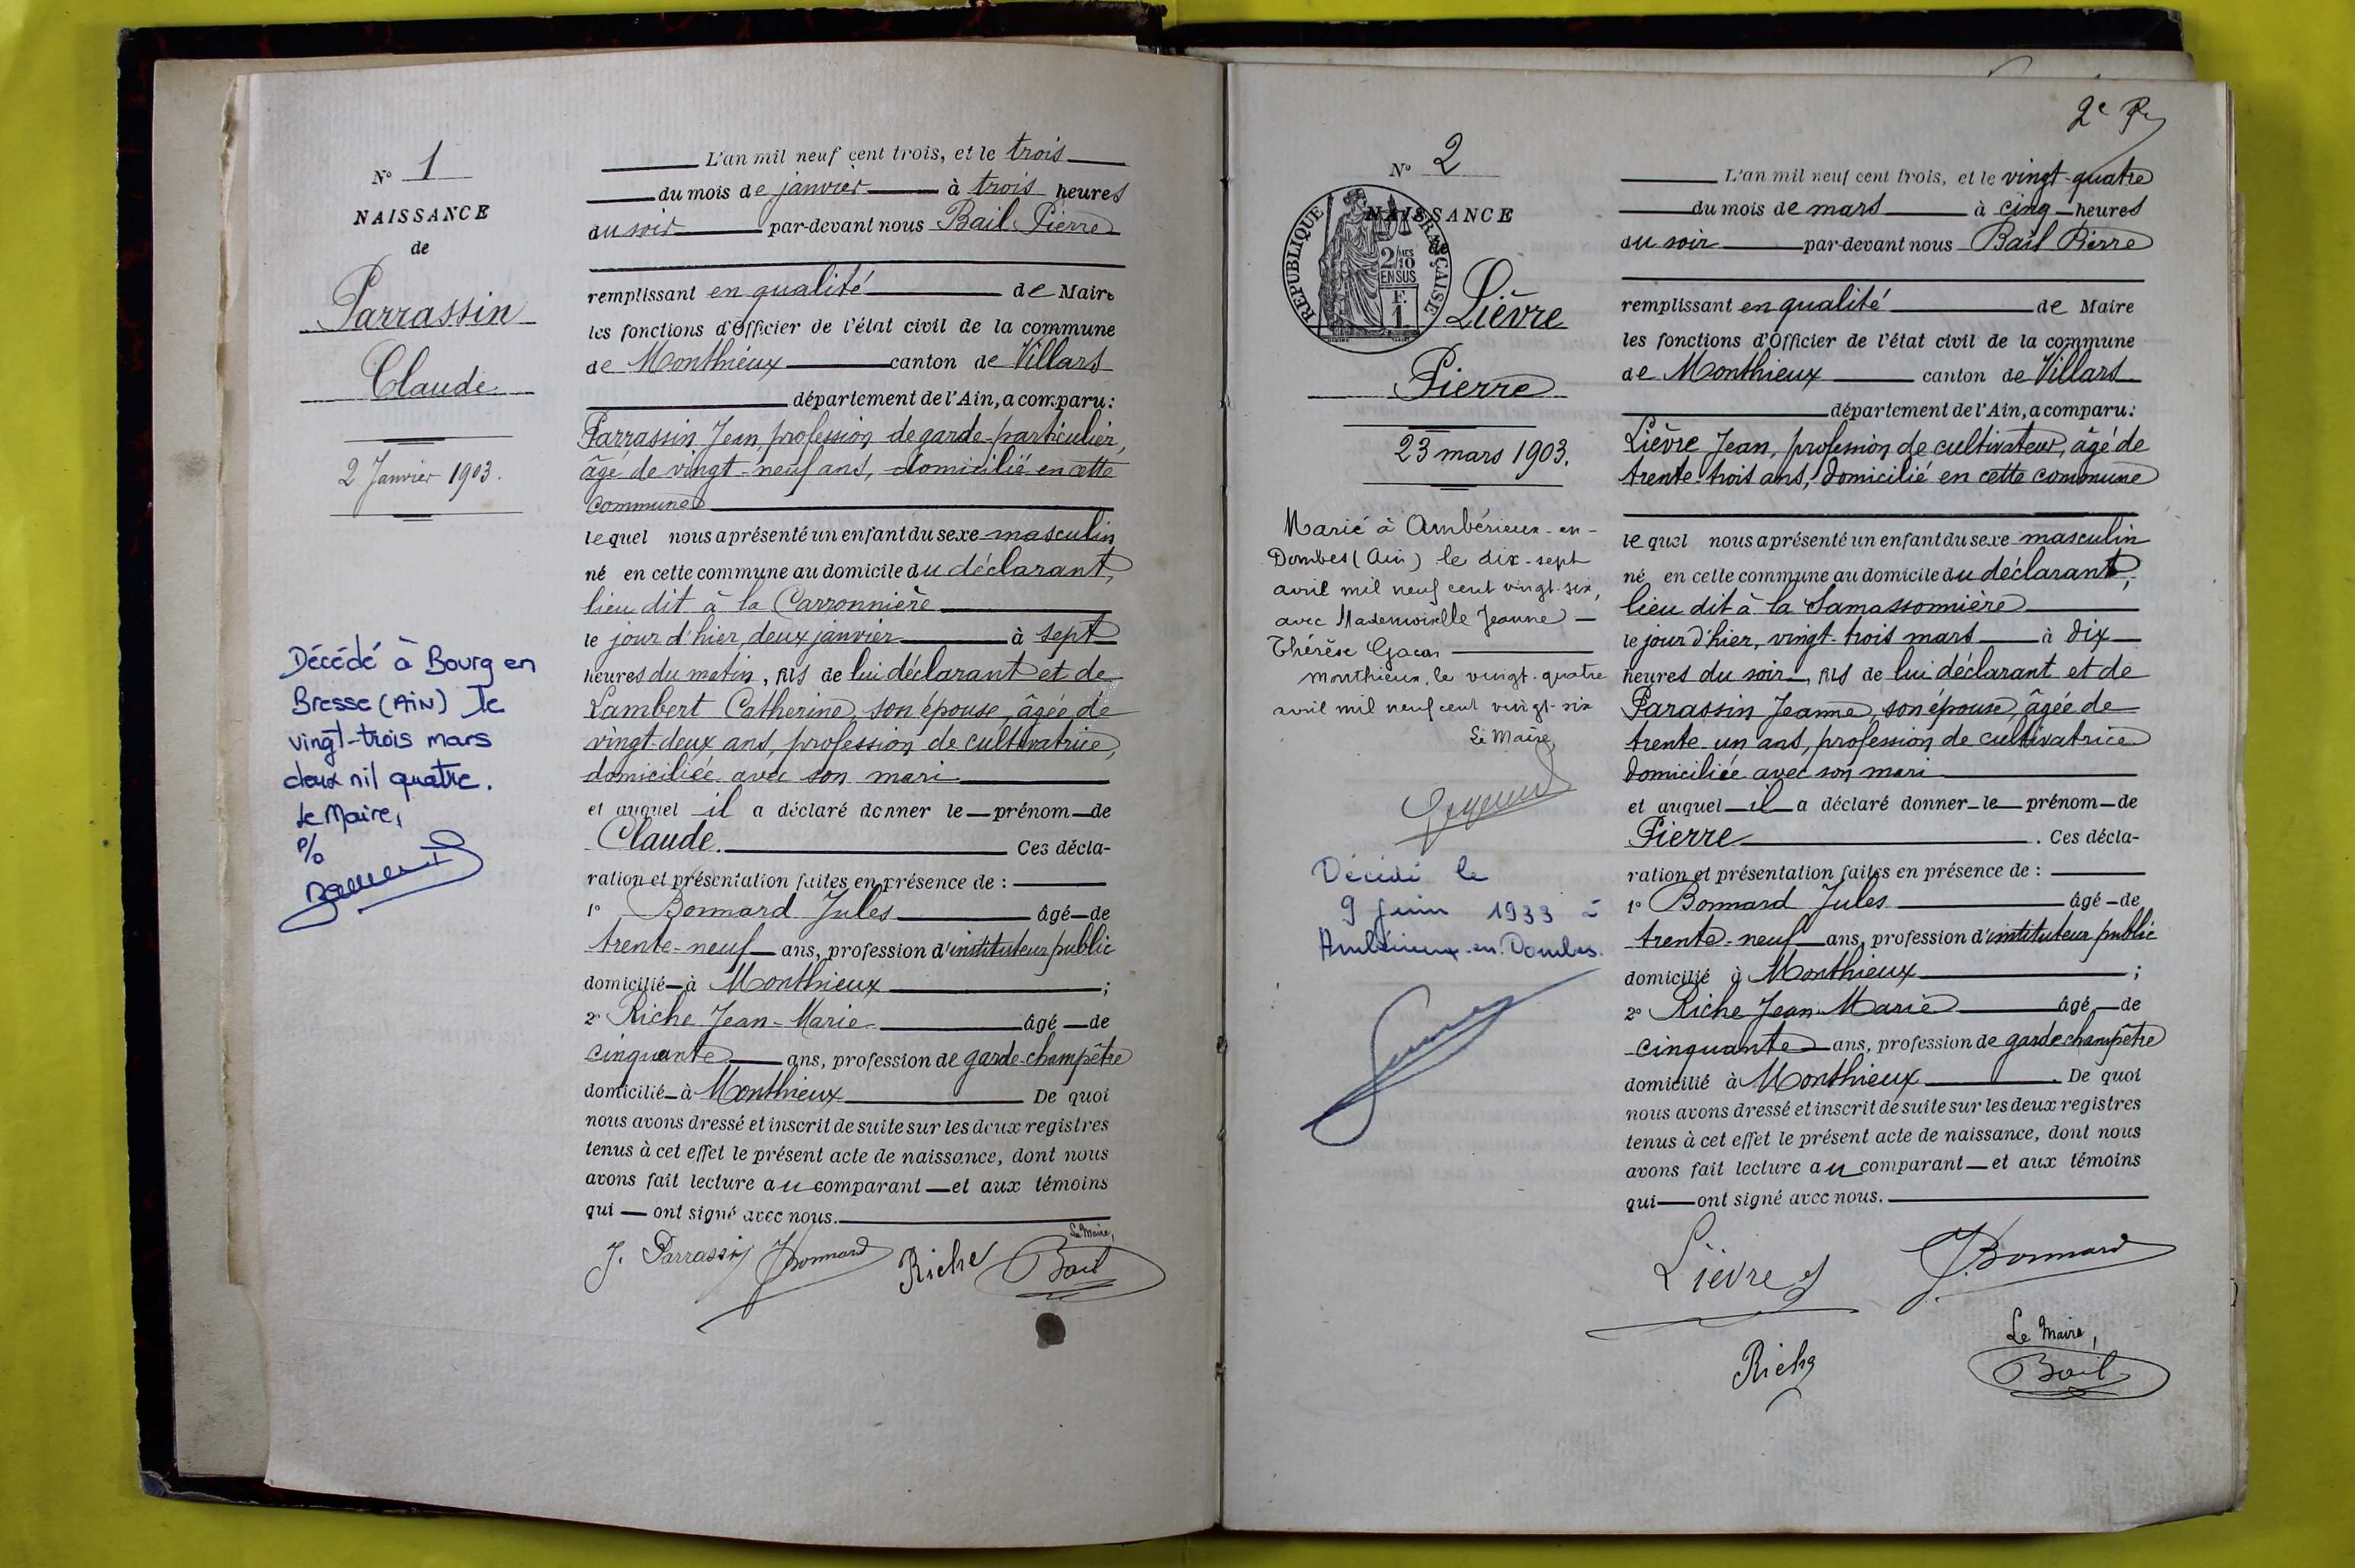 N° 1
NAISSANCE
de
Parrassin
Claude
2 Janvier 1903.
Décédé à Bourg en
Bresse (AiN) le
vingt-trois mars
deux mil quatre.
Le Maire,
L'an mil neuf cent trois, et le trois
du mois de janvier à trois heures
du soir par-devant nous Bail Pierre
remplissant en qualité de Maire
les fonctions d'Officier de l'état civil de la commune
de Monthieux canton de Villars
département de l'Ain, a comparu:
Parrassin Jean, profession de garde-particulier,
âgé de vingt-neuf ans, domicilié en cette
commune
lequel nous a présenté un enfant du sexe masculin
né en cette commune au domicile du déclarant,
lieu dit à la Carronnière
le jour d'hier, deux janvier à sept
heures du matin, fils de lui déclarant et de
Lambert Catherine, son épouse, âgée de
vingt-deux ans, profession de cultivatrice,
domiciliée avec son mari
et auquel il a déclaré donner le prénom de
Claude. Ces décla-
ration et présentation faites en présence de :
1° Bonnard Jules âgé de
trente-neuf ans, profession d'instituteur public
domicilié à Monthieux ;
2° Riche Jean-Marie âgé de
cinquante ans, profession de garde-champêtre
domicilié à Monthieux De quoi
nous avons dressé et inscrit de suite sur les deux registres
tenus à cet effet le présent acte de naissance, dont nous
avons fait lecture au comparant et aux témoins
qui ont signé avec nous.
Le Maire,
J. Parrassin J Bonnard Riche Bail
2e
N° 2
NAISSANCE
de
REPUBLIQUE FRANÇAISE
2/10 MES
EN SUS
F.
1
Lièvre
Pierre
23 mars 1903.
Marié à Ambérieux-en-
Dombes (Ain) le dix-sept
avril mil neuf cent vingt-six,
avec Mademoiselle Jeanne
Thérèse Gacon
Monthieux, le vingt-quatre
avril mil neuf cent vingt-six
Le Maire,
Décédé le
9 juin 1933 à
Ambérieux-en-Dombes.
L'an mil neuf cent trois, et le vingt-quatre
du mois de mars à cinq heures
du soir par-devant nous Bail Pierre
remplissant en qualité de Maire
les fonctions d'Officier de l'état civil de la commune
de Monthieux canton de Villars
département de l'Ain, a comparu:
Lièvre Jean, profession de cultivateur, âgé de
trente-trois ans, domicilié en cette commune
lequel nous a présenté un enfant du sexe masculin
né en cette commune au domicile du déclarant,
lieu dit à la Samassonnière
le jour d'hier, vingt-trois mars à dix
heures du soir, fils de lui déclarant et de
Parassin Jeanne, son épouse, âgée de
trente un ans, profession de cultivatrice
domiciliée avec son mari
et auquel il a déclaré donner le prénom de
Pierre . Ces décla-
ration et présentation faites en présence de :
1° Bonnard Jules âgé de
trente-neuf ans, profession d'instituteur public
domicilié à Monthieux ;
2° Riche Jean-Marie âgé de
cinquante ans, profession de garde champêtre
domicilié à Monthieux . De quoi
nous avons dressé et inscrit de suite sur les deux registres
tenus à cet effet le présent acte de naissance, dont nous
avons fait lecture au comparant et aux témoins
qui ont signé avec nous.
Lièvre J. Bonnard
Le Maire,
Riche Bail